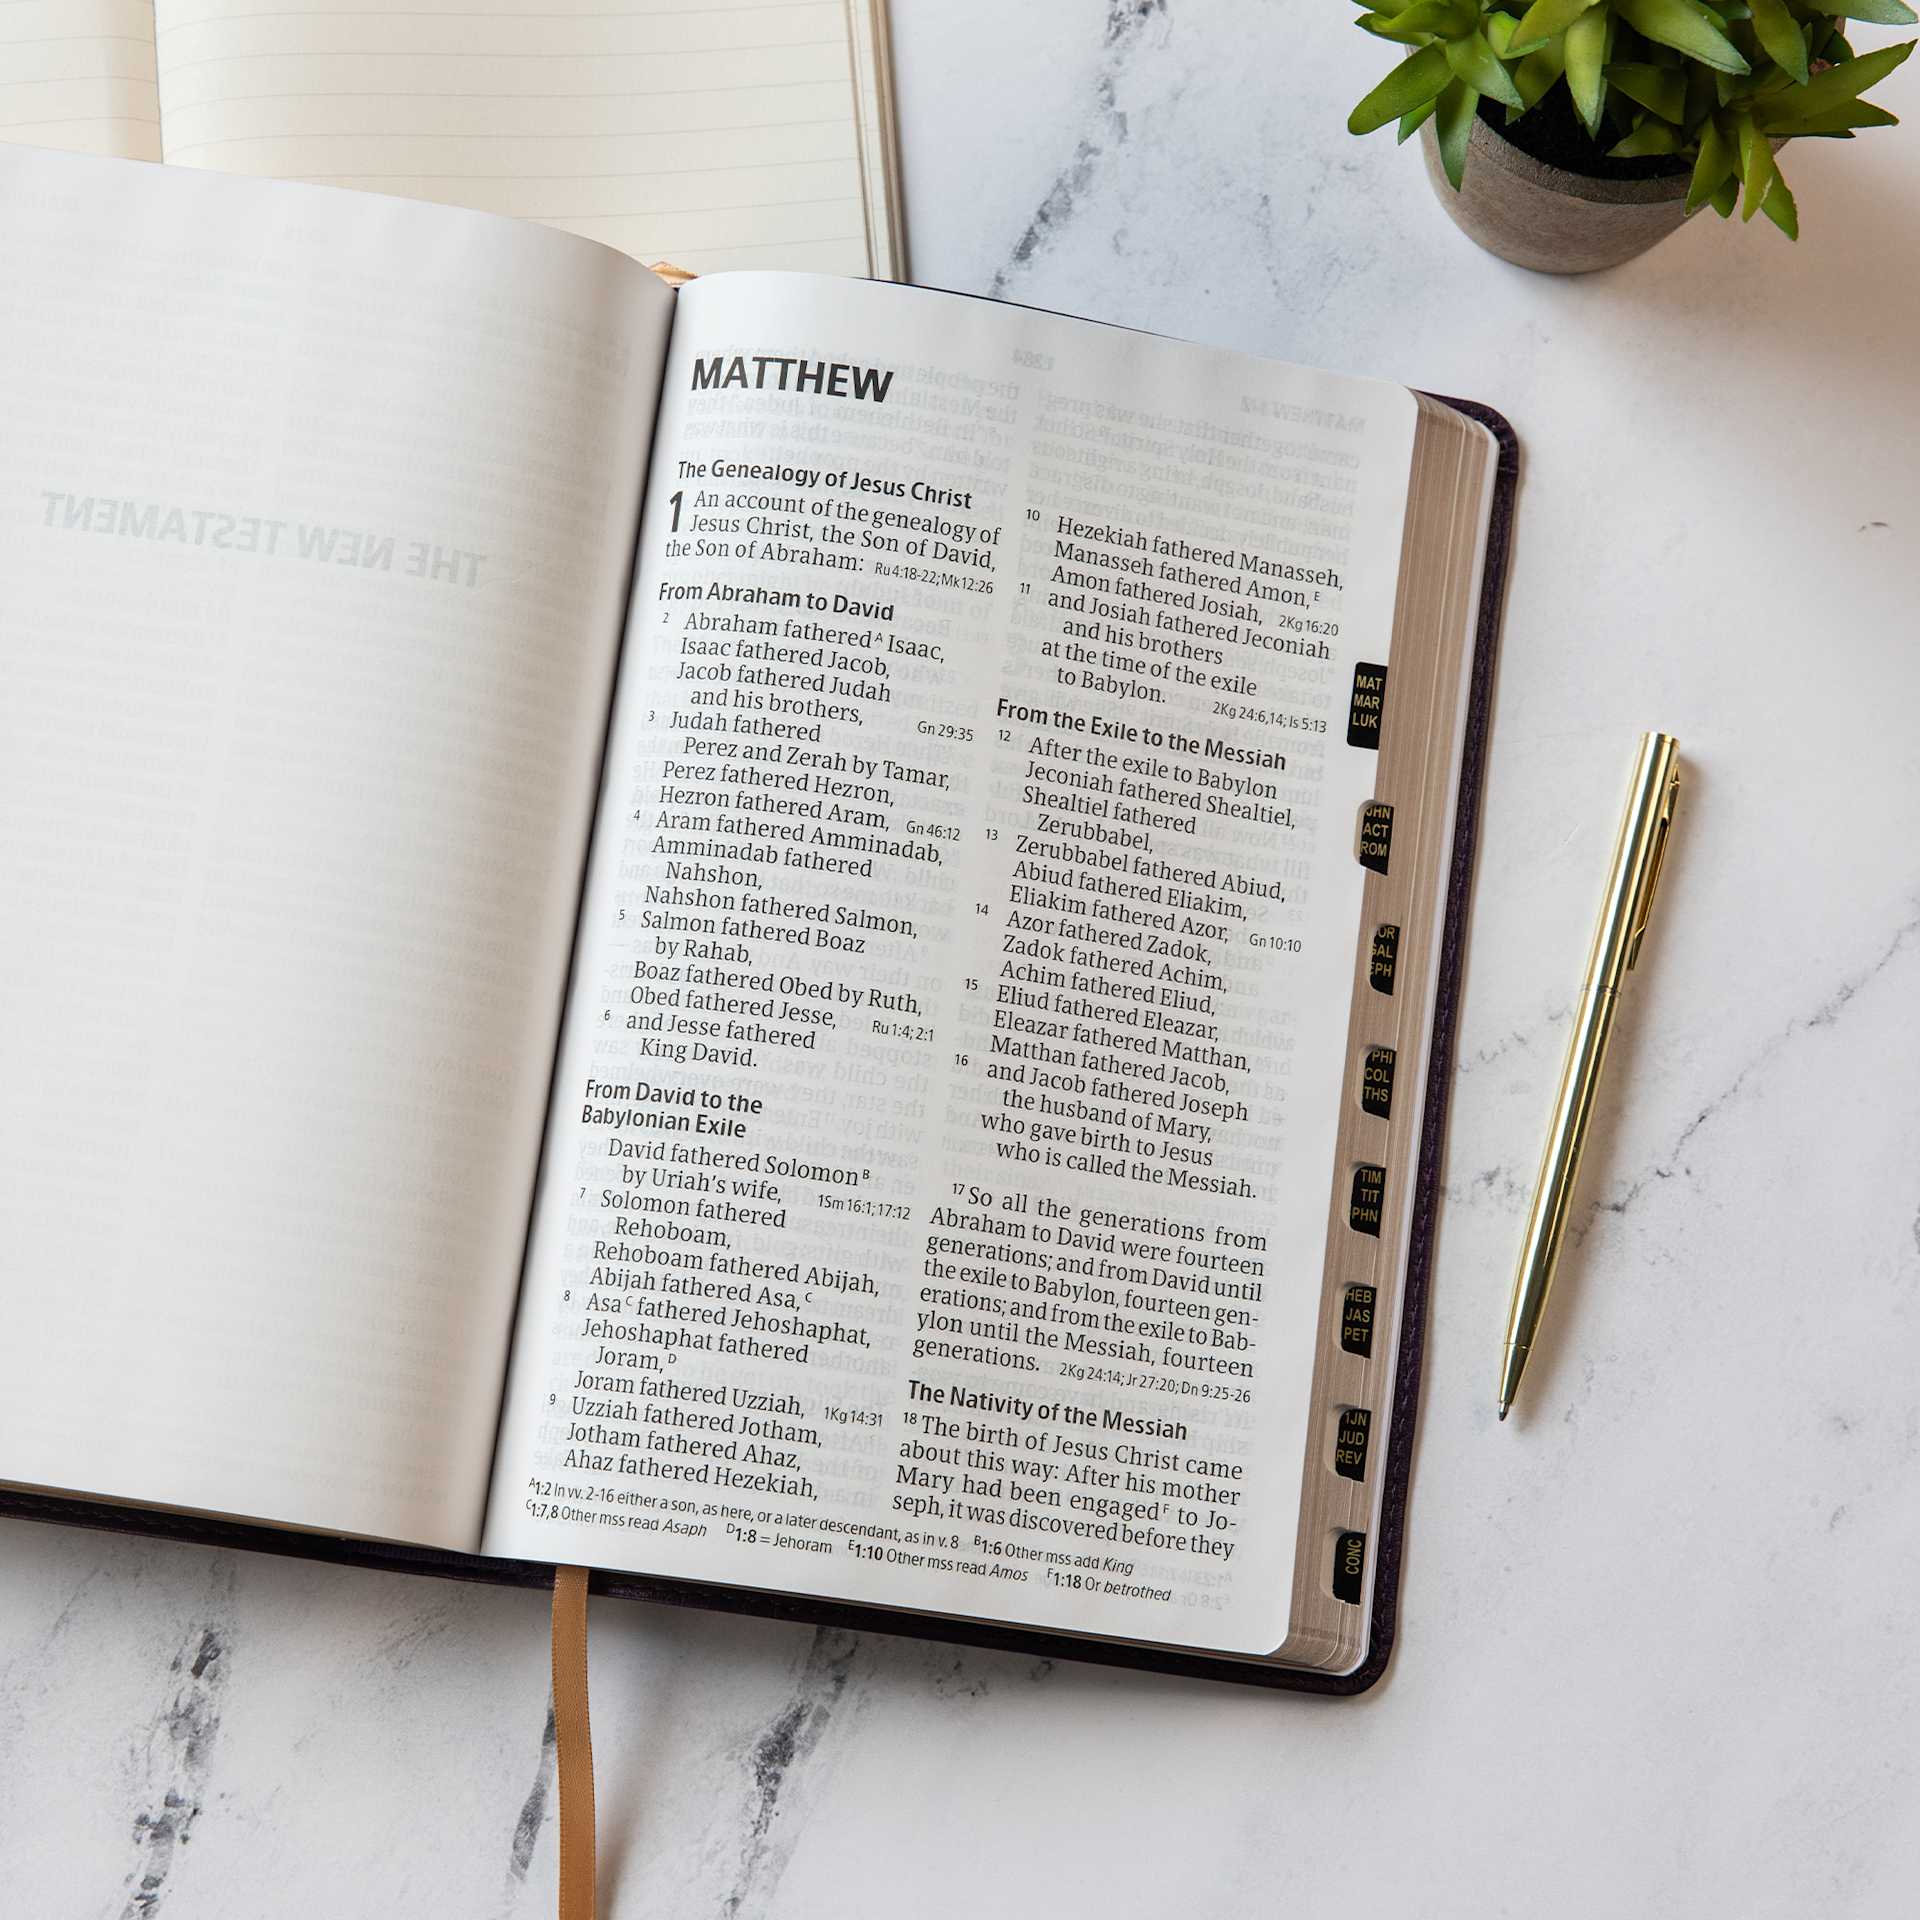 THE NEW TESTAMENT
MATTHEW
The Genealogy of Jesus Christ
1 An account of the genealogy of
Jesus Christ, the Son of David,
the Son of Abraham: Ru 4:18-22; Mk 12:26
From Abraham to David
2 Abraham fathered A Isaac,
Isaac fathered Jacob,
Jacob fathered Judah
and his brothers,
3 Judah fathered Gn 29:35
Perez and Zerah by Tamar,
Perez fathered Hezron,
Hezron fathered Aram, Gn 46:12
4 Aram fathered Amminadab,
Amminadab fathered
Nahshon,
Nahshon fathered Salmon,
5 Salmon fathered Boaz
by Rahab,
Boaz fathered Obed by Ruth,
Obed fathered Jesse, Ru 1:4; 2:1
6 and Jesse fathered
King David.
From David to the
Babylonian Exile
David fathered Solomon B
by Uriah's wife, 1Sm 16:1; 17:12
7 Solomon fathered
Rehoboam,
Rehoboam fathered Abijah,
Abijah fathered Asa, C
8 Asa C fathered Jehoshaphat,
Jehoshaphat fathered
Joram, D
Joram fathered Uzziah, 1Kg 14:31
9 Uzziah fathered Jotham,
Jotham fathered Ahaz,
Ahaz fathered Hezekiah,
10 Hezekiah fathered Manasseh,
Manasseh fathered Amon, E
Amon fathered Josiah, 2Kg 16:20
11 and Josiah fathered Jeconiah
and his brothers
at the time of the exile
to Babylon. 2Kg 24:6,14; Is 5:13
From the Exile to the Messiah
12 After the exile to Babylon
Jeconiah fathered Shealtiel,
Shealtiel fathered
Zerubbabel,
13 Zerubbabel fathered Abiud,
Abiud fathered Eliakim,
Eliakim fathered Azor, Gn 10:10
14 Azor fathered Zadok,
Zadok fathered Achim,
Achim fathered Eliud,
15 Eliud fathered Eleazar,
Eleazar fathered Matthan,
Matthan fathered Jacob,
16 and Jacob fathered Joseph
the husband of Mary,
who gave birth to Jesus
who is called the Messiah.
17 So all the generations from
Abraham to David were fourteen
generations; and from David until
the exile to Babylon, fourteen gen-
erations; and from the exile to Bab-
ylon until the Messiah, fourteen
generations. 2Kg 24:14; Jr 27:20; Dn 9:25-26
The Nativity of the Messiah
18 The birth of Jesus Christ came
about this way: After his mother
Mary had been engaged F to Jo-
seph, it was discovered before they
A 1:2 In vv. 2-16 either a son, as here, or a later descendant, as in v. 8 B 1:6 Other mss add King
C 1:7,8 Other mss read Asaph D 1:8 = Jehoram E 1:10 Other mss read Amos F 1:18 Or betrothed
MAT
MAR
LUK
JHN
ACT
ROM
GAL
EPH
PHI
COL
THS
TIM
TIT
PHN
HEB
JAS
PET
1JN
JUD
REV
CONC